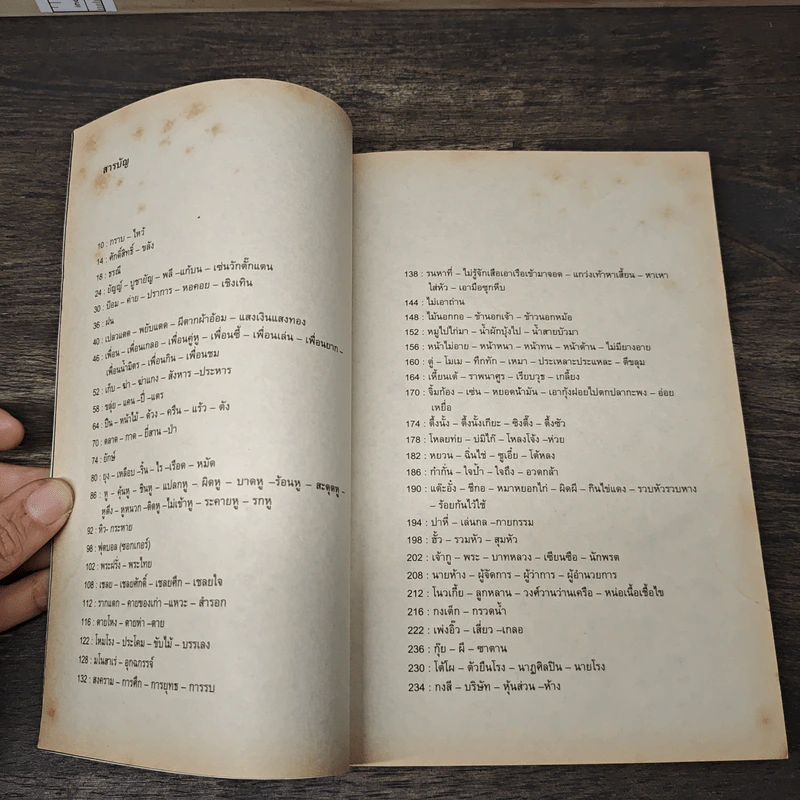 สารบัญ
10 : กราบ – ไหว้
14 : ศักดิ์สิทธิ์ – ขลัง
18 : ธรณี
24 : ยัญญ์ – บูชายัญ – พลี –แก้บน – เซ่นวักตั๊กแตน
30 : ป้อม – ค่าย – ปราการ – หอคอย – เชิงเทิน
36 : ฝน
40 : เปลวแดด – พยับแดด – ผีตากผ้าอ้อม – แสงเงินแสงทอง
46 : เพื่อน – เพื่อนเกลอ – เพื่อนคู่หู – เพื่อนซี้ – เพื่อนเล่น – เพื่อนยาก –
เพื่อนน้ำมิตร – เพื่อนกิน – เพื่อนชม
52 : เก็บ – ฆ่า – ฆ่าแกง – สังหาร –ประหาร
58 : ขลุ่ย – แคน – ปี่ –แตร
64 : ปืน – หน้าไม้ – ด้วง – ครืน – แร้ว – ดัง
70 : ตลาด – กาด – ยี่สาน –ป่า
74 : ยักษ์
80 : ยุง –เหลือบ –ริ้น – ไร –เรือด – หมัด
86 : หู – คุ้นหู – ชินหู – แปลกหู – ผิดหู – บาดหู –ร้อนหู – สะดุดหู –
หูตึง – หูหนวก –ติดหู –ไม่เข้าหู – ระคายหู – รกหู
92 : หิว– กระหาย
98 : ฟุตบอล (ซอกเกอร์)
102 : พระฝรั่ง – พระไทย
108 : เชลย – เชลยศักดิ์ – เชลยศึก – เชลยใจ
112 : รากแตก – คายของเก่า –แหวะ – สำรอก
116 : ตายโหง – ตายห่า –ตาย
122 : โหมโรง – ประโคม – ขับไม้ – บรรเลง
128 : มโนสาเร่ – อุกฉกรรจ์
132 : สงคราม – การศึก – การยุทธ – การรบ
138 : รนหาที่ – ไม่รู้จักเสือเอาเรือเข้ามาจอด – แกว่งเท้าหาเสี้ยน – หาเหา
ใส่หัว – เอามือซุกหีบ
144 : ไม่เอาถ่าน
148 : ไม้นอกกอ – ข้านอกเจ้า – ข้าวนอกหม้อ
152 : หมูไปไก่มา – น้ำผักบุ้งไป – น้ำสายบัวมา
156 : หน้าไม่อาย – หน้าหนา – หน้าทน – หน้าด้าน – ไม่มียางอาย
160 : ตู่ – โมเม – ทึกทัก – เหมา – ประเหลาะประแหละ – ตีขลุม
164 : เหี้ยนเต้ – ราพนาศูร – เรียบวุธ – เกลี้ยง
170 : จิ้มก้อง – เซ่น – หยอดน้ำมัน – เอากุ้งฝอยไปตกปลากะพง – อ่อย
เหยื่อ
174 : ตึ้งนั้ง – ตึ้งนั้งเกียะ – ซิงตึ้ง – ตึ้งซัว
178 : โหลยท่ย – บ่มิไก๊ – โหลงโจ้ง –ห่วย
182 : หยวน – ฉินไช่ – ซูเอี๋ย – โต้หลง
186 : กำกั่น – ใจป้ำ – ใจถึง – อวดกล้า
190 : แต๊ะอั๋ง – ชีกอ – หมาหยอกไก่ – ผิดผี – กินไข่แดง – รวบหัวรวบหาง
– ร้อยกันไว้ใช้
194 : ปาหี่ – เล่นกล –กายกรรม
198 : ฮั้ว – รวมหัว – สุมหัว
202 : เจ้ากู – พระ – บาทหลวง – เซียนซือ – นักพรต
208 : นายห้าง – ผู้จัดการ – ผู้ว่าการ – ผู้อำนวยการ
212 : โนวเกี้ย – ลูกหลาน – วงศ์วานว่านเครือ – หน่อเนื้อเชื้อไข
216 : กงเต็ก – กรวดน้ำ
222 : เพ่งอิ๊ว – เสี่ยว –เกลอ
236 : กุ๊ย – ผี – ซาตาน
230 : โต้โผ – ตัวยืนโรง – นาฏศิลปิน – นายโรง
234 : กงสี – บริษัท – หุ้นส่วน –ห้าง